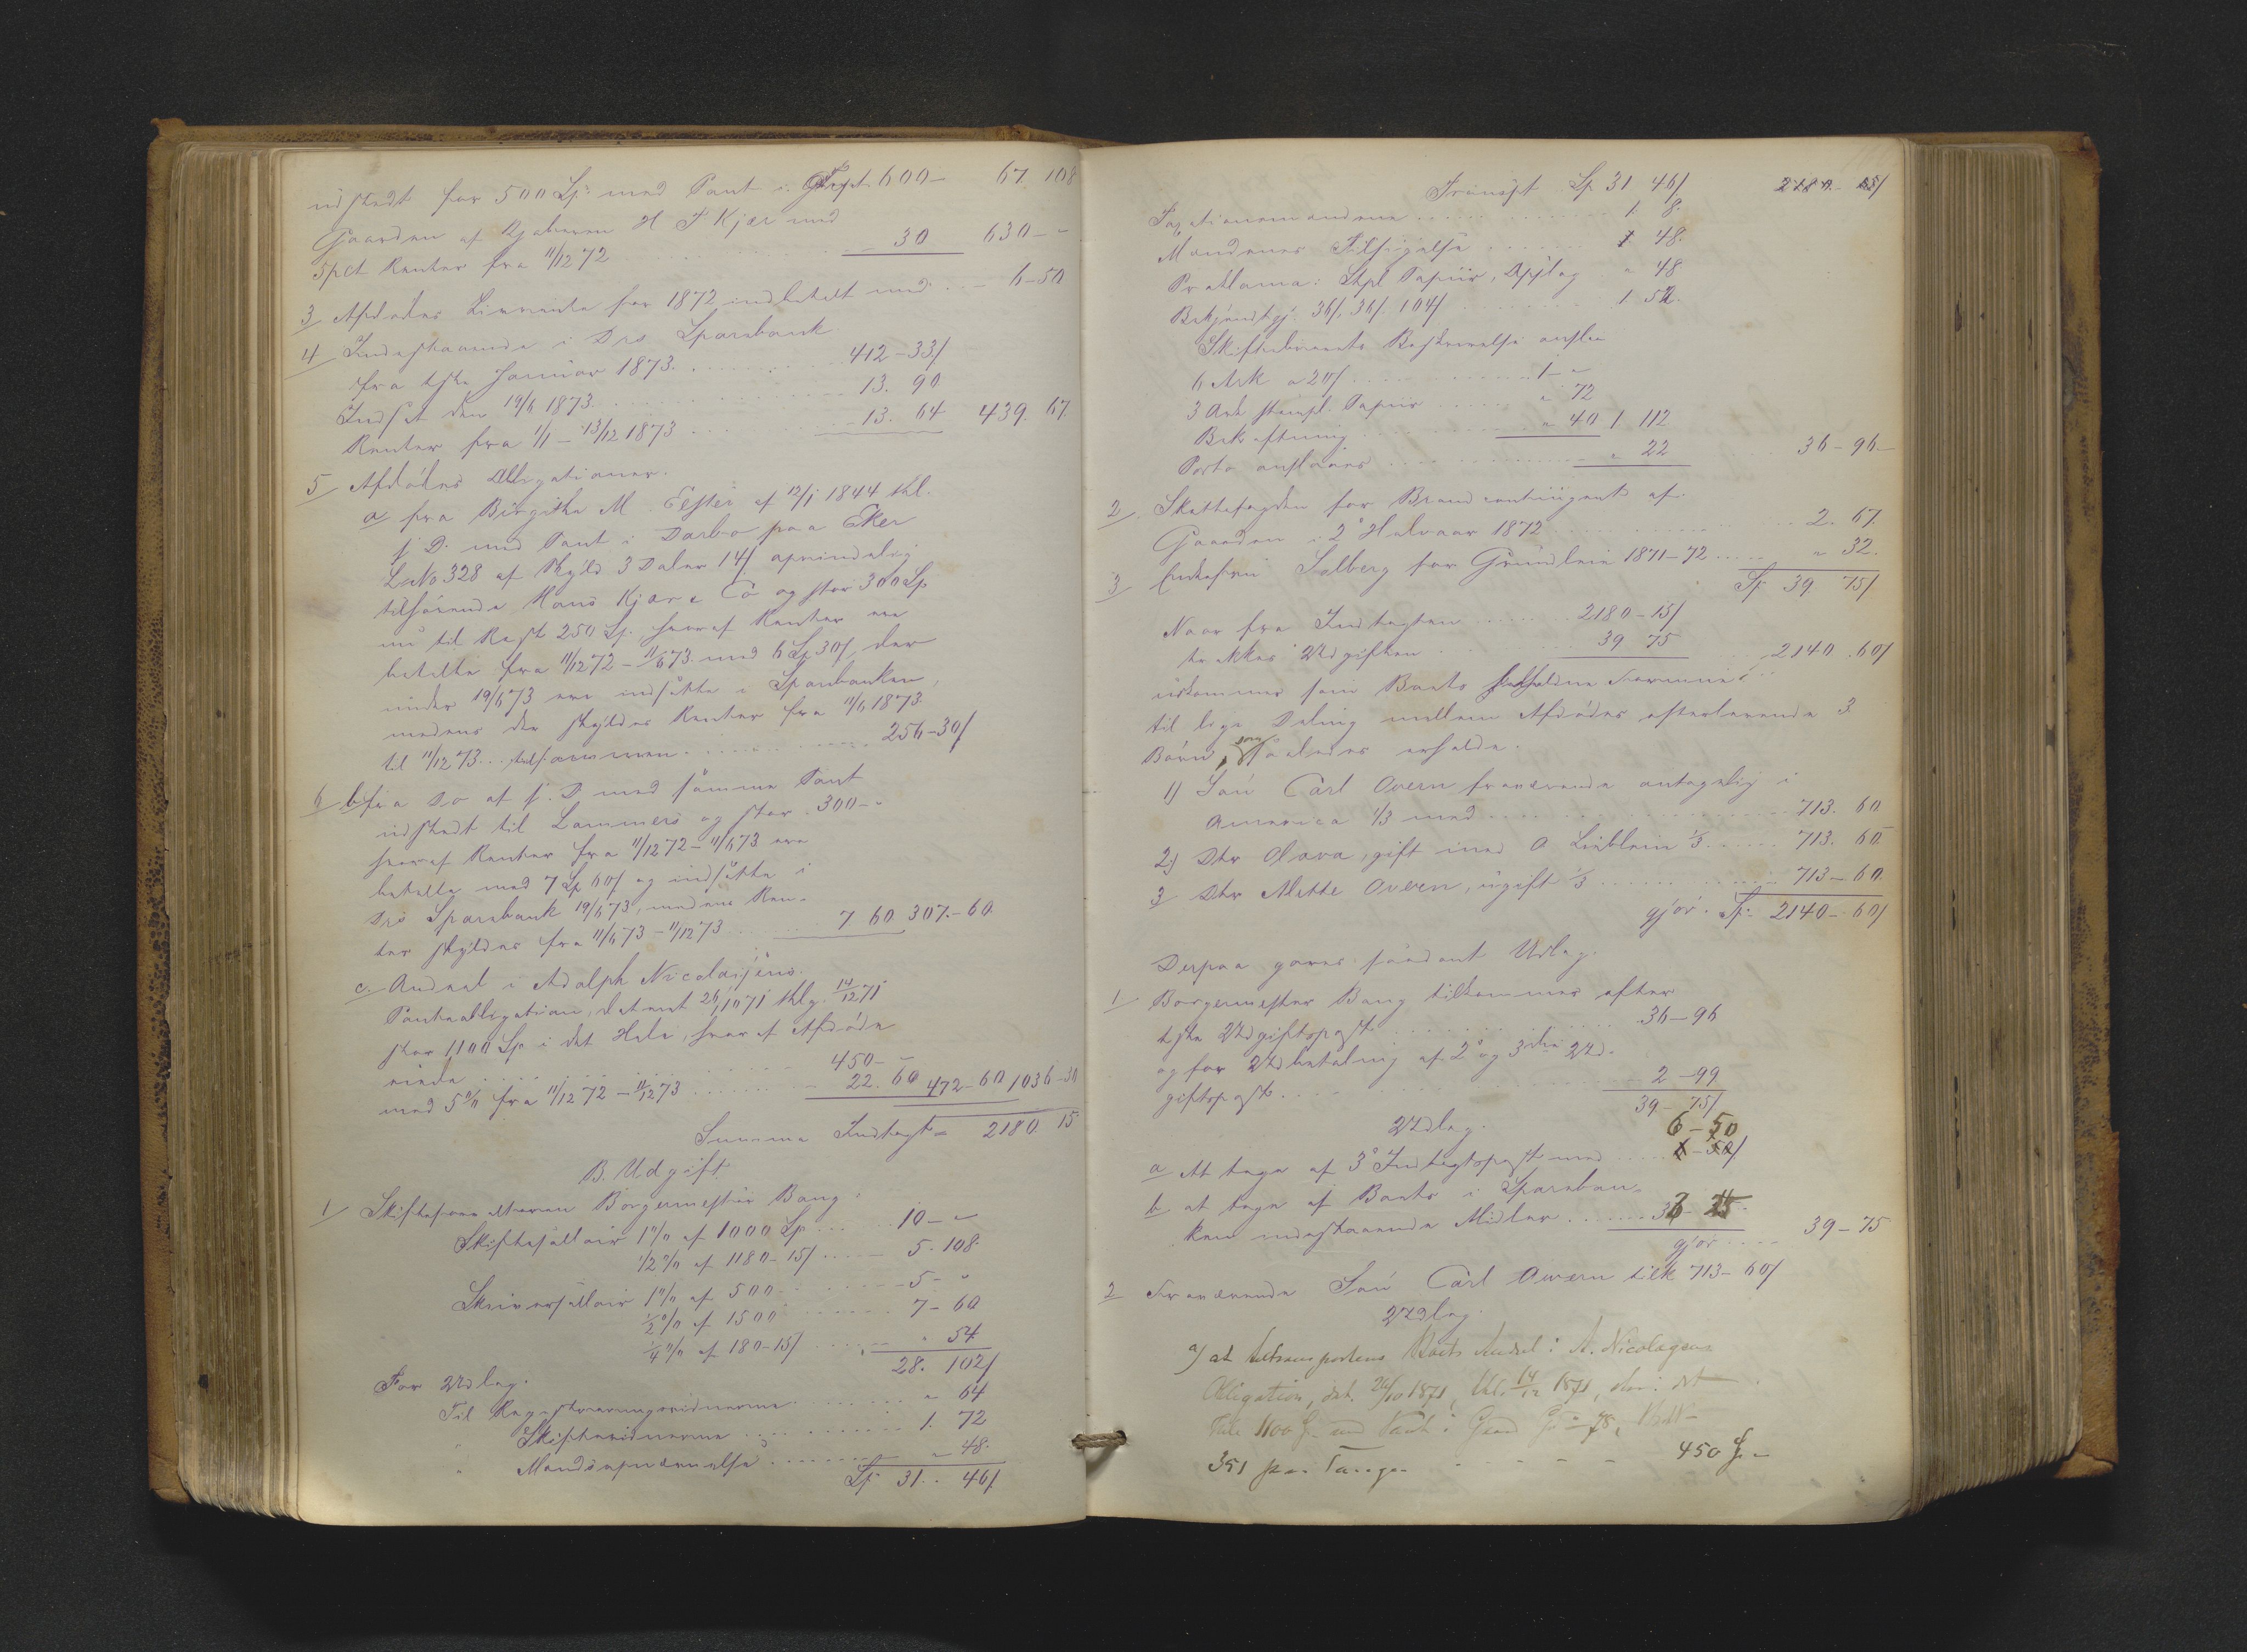 Trspt. 600- 67. 108
udstedt for 500 Sp: med Pant i
Gaarden af Kjøberen H P Kjær med
5pct Renter fra 11/12 72 30 630--
3 Afdødes Livrente for 1872 indbetalt med - 6-50
4 Indestaaende i Drs Sparebank
fra 1ste Januar 1873 412-33/
Indsat den 19/6 1873 13. 90
Renter fra 1/1 - 13/12 1873 13. 64 439. 67.
5 Afdødes Obligationer.
a fra Birgithe M. Elster af 12/1 1844 thl.
s. D. med Pant i Darbo paa Eker
L No 328 af Skyld 3 Daler 14/ oprindelig
tilhørende Hans Kjær & Co og stor 300 Sp
nu til Rest 250 Sp. hvoraf Renter ere
betalte fra 11/12 72 - 11/6 73 med 6 Sp 30/, der
under 19/6 73 ere indsatte i Sparebanken,
medens der skyldes Renter fra 11/6 1873
til 11/12 73 .. tilsammen 256-30/
6 b fra Do af s. D med samme Pant
udstedt til Lammers og stor 300--
hvoraf Renter fra 11/12 72 - 11/6 73 ere
betalte med 7 Sp 60/ og indsatte i
Drs Sparebank 19/6 73, medens Ren-
ter skyldes fra 11/6 73 - 11/12 73 7 60 307.-60.
c. Andeel i Adolph Nicolaisens
Panteobligation, dateret 26/10 71 thlg. 14/12 71
stor 1100 Sp i det Hele, hvoraf Afdøde
eiede 450--
med 5% fra 11/12 72 - 11/12 73 22. 60 472-60 1036-30
Summa Indtægt = 2180 15
B. Udgift
1 Skifteforvalteren Borgermester Bang:
Skiftesallair 1% af 1000 Sp 10-"
1/2% af 1180-15/ 5. 108.
Skriversallair 1% af 500 5-"
1/2% af 1500 7-60
1/4% af 180-15/ " 54
28. 102/
For Udlæg.
Til Registreringsvidnerne " 64
" Skiftevidnerne 1. 72
" Mandsopnævnelse " 48.
Sp 31.. 46/
Transpt Sp 31 46/ 2180. 15/
Taxationsmændene 1. 8.
Mændenes Tilsigelse 1 48.
Proclama: Stpl Papiir, Opslag " 48
Bekjendtgj: 36/, 36/. 104/ 1 52.
Skiftebrevets Beskrivelse ansl.
6 Ark a 20/ 1-"
3 Ark stempl. Papiir " 72
Bekræftning " 40 1 112
Porto anslaaes " 22 36-96-
2. Skattefogden for Brandcontingent af
Gaarden i 2d Halvaar 1872 2. 67.
3 Enkefru Solberg for Grundleie 1871-72 " 32.
Sp 39 75/
Naar fra Indtægten 2180-15/
trækkes Udgiften 39 75 2140. 60/
udkommer som Boets beholdne Formue
til lige Deling mellem Afdødes efterlevende 3
Børn, som saaledes erholde.
1) Søn Carl Overn fraværende antagelig i
America 1/3 med 713. 60
2.) Dtr Clara, gift med O Lieblein 1/3 713. 60
3 Dtr Mette Overn, ugift 1/3 713-60
gjør. Sp: 2140-60/
Derpaa gjøres saadant Udlæg.
1 Borgermester Bang tilkommer efter
1ste Udgiftspost 36-96
og for Udbetaling af 2d og 3die Ud-
giftspost 2-99
39-75/
Udlæg. 6-50
a At tage af 3d Indtægtspost med 6-50/
b at tage af Boets i Spareban-
ken indestaaende Midler 33 25
gjør 39-75
2 Fraværende Søn Carl Overn tilk 713-60/
Udlæg.
a) at tiltransporteres Boets Andeel i A. Nicolaysens
Obligation, dat. 26/10 1871, thl. 14/12 1871, stor i det
Hele 1100 Sp med Pant i Gaard 78,
351 paa Tangen - - - - - 450 Sp -